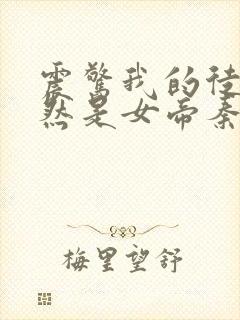 震惊我的徒
然是女帝秦
梅里望舒